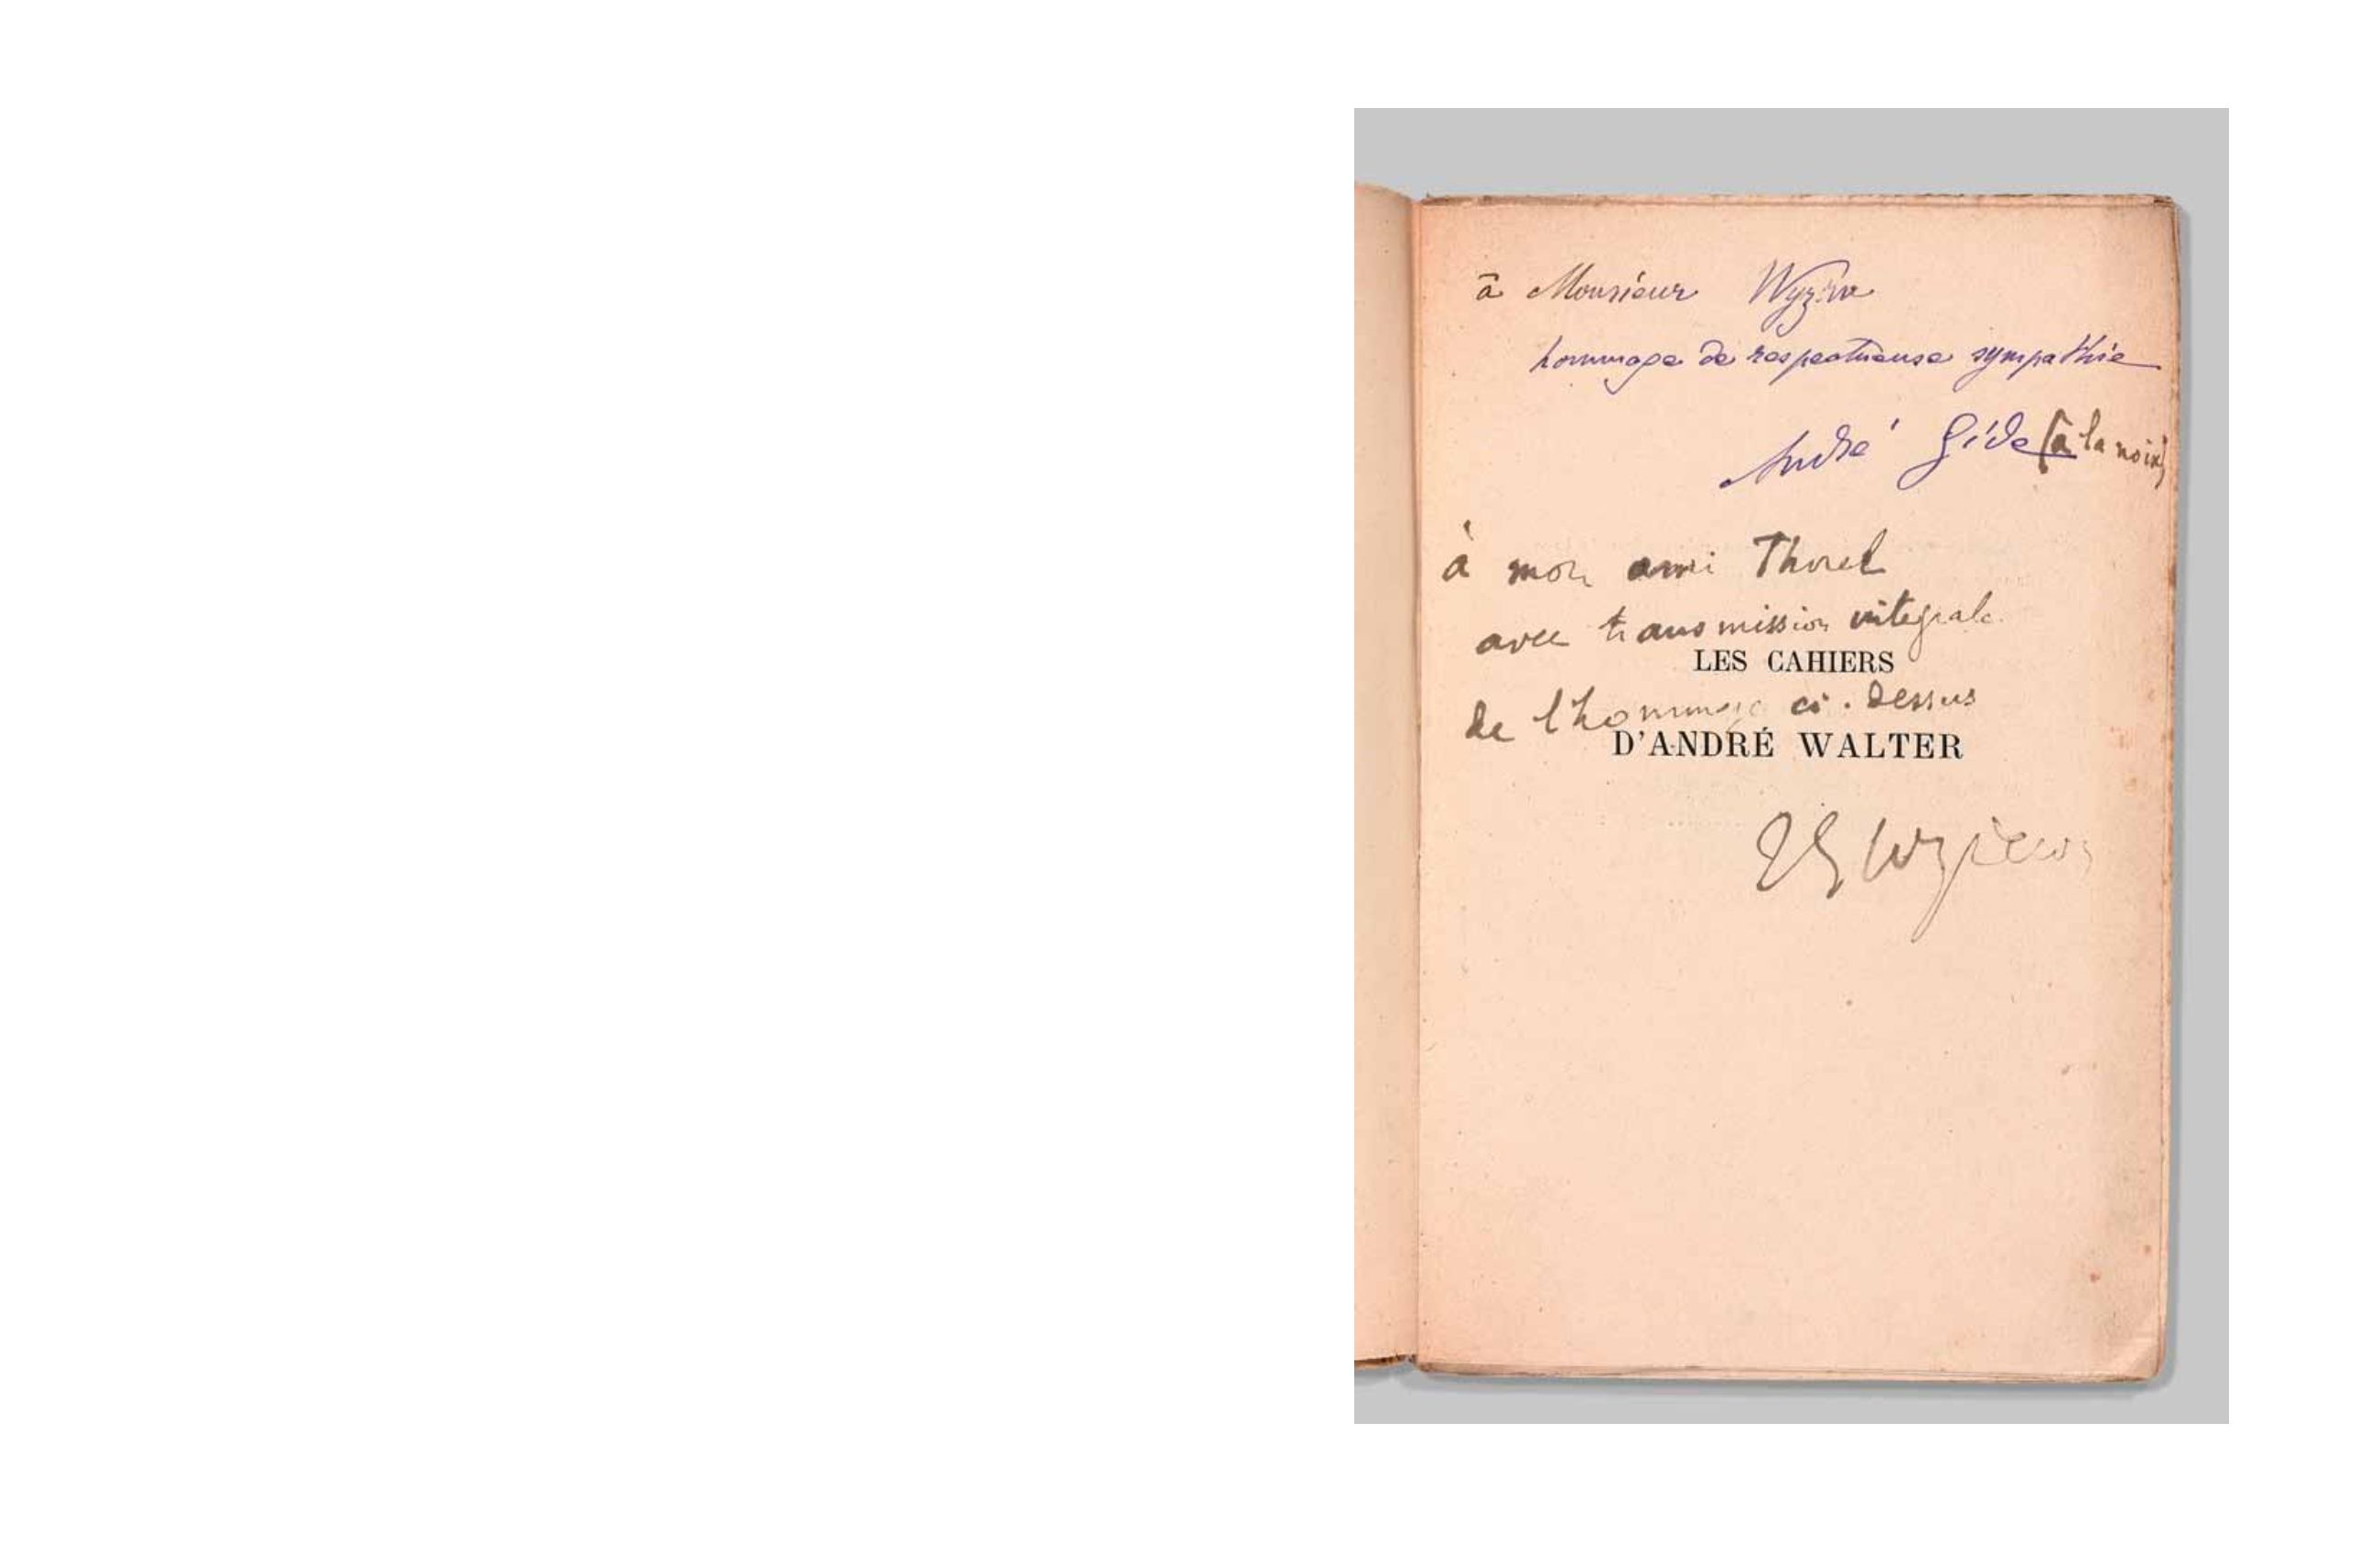 à Monsieur Wyzéva
hommage de respectueuse sympathie
André Gide (à la noix)
à mon ami Thorel
avec transmission intégrale
LES CAHIERS
de l'hommage ci-dessus
D'ANDRÉ WALTER
Wyzewa